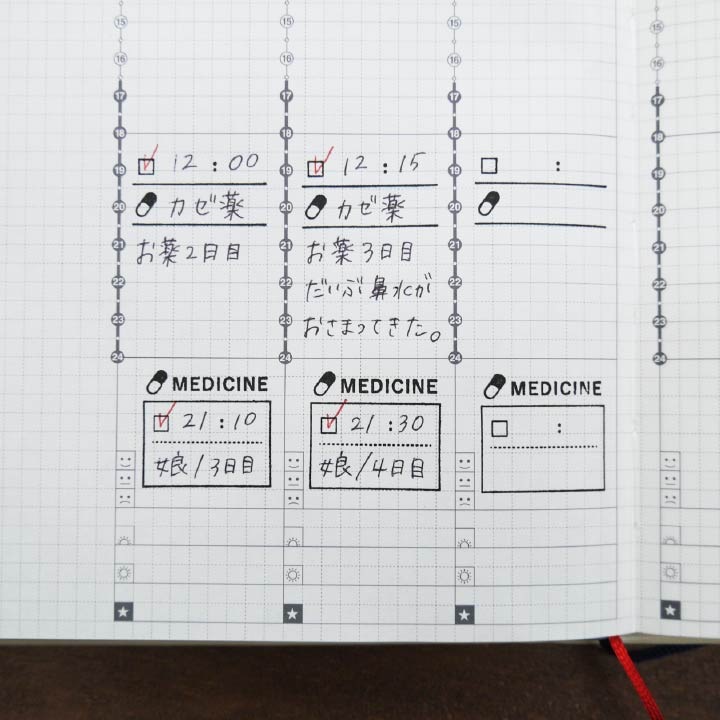 15
16
17
18
19
20
21
22
23
24
12:00
カゼ薬
お薬2日目
MEDICINE
21:10
娘/3日目
15
16
17
18
19
20
21
22
23
24
12:15
カゼ薬
お薬3日目
だいぶ鼻水が
おさまってきた。
MEDICINE
21:30
娘/4日目
15
16
17
18
19
20
21
22
23
24
:
MEDICINE
:
15
16
17
18
19
20
21
22
23
24